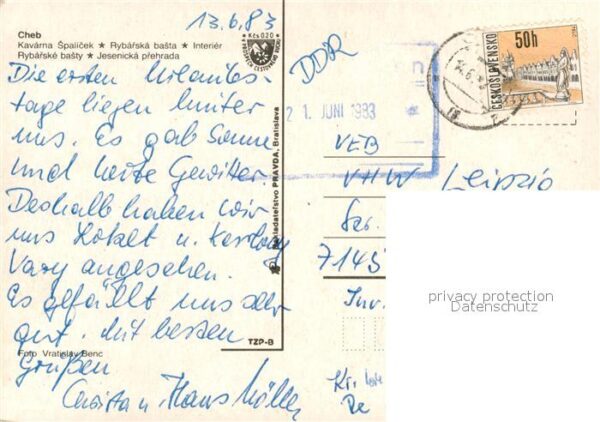 13.6.83
Cheb
Kavárna Špalíček ★ Rybářská bašta ★ Interiér
Rybářské bašty ★ Jesenická přehrada
Kčs 0,20
Die ersten Urlaubs-
tage liegen hinter
uns. Es gab Sonne
und heute Gewitter.
Deshalb haben wir
uns u. Karlovy
Vary angesehen.
Es gefällt uns sehr
gut. Mit besten
Grüßen
Christa u. Hans
Foto Vratislav Benc
TZP-B
Nakladatelství PRAVDA, Bratislava
DDR
21. JUNI 1983
ČESKOSLOVENSKO
50h
VEB
VHW Leipzig
7145
privacy protection
Datenschutz